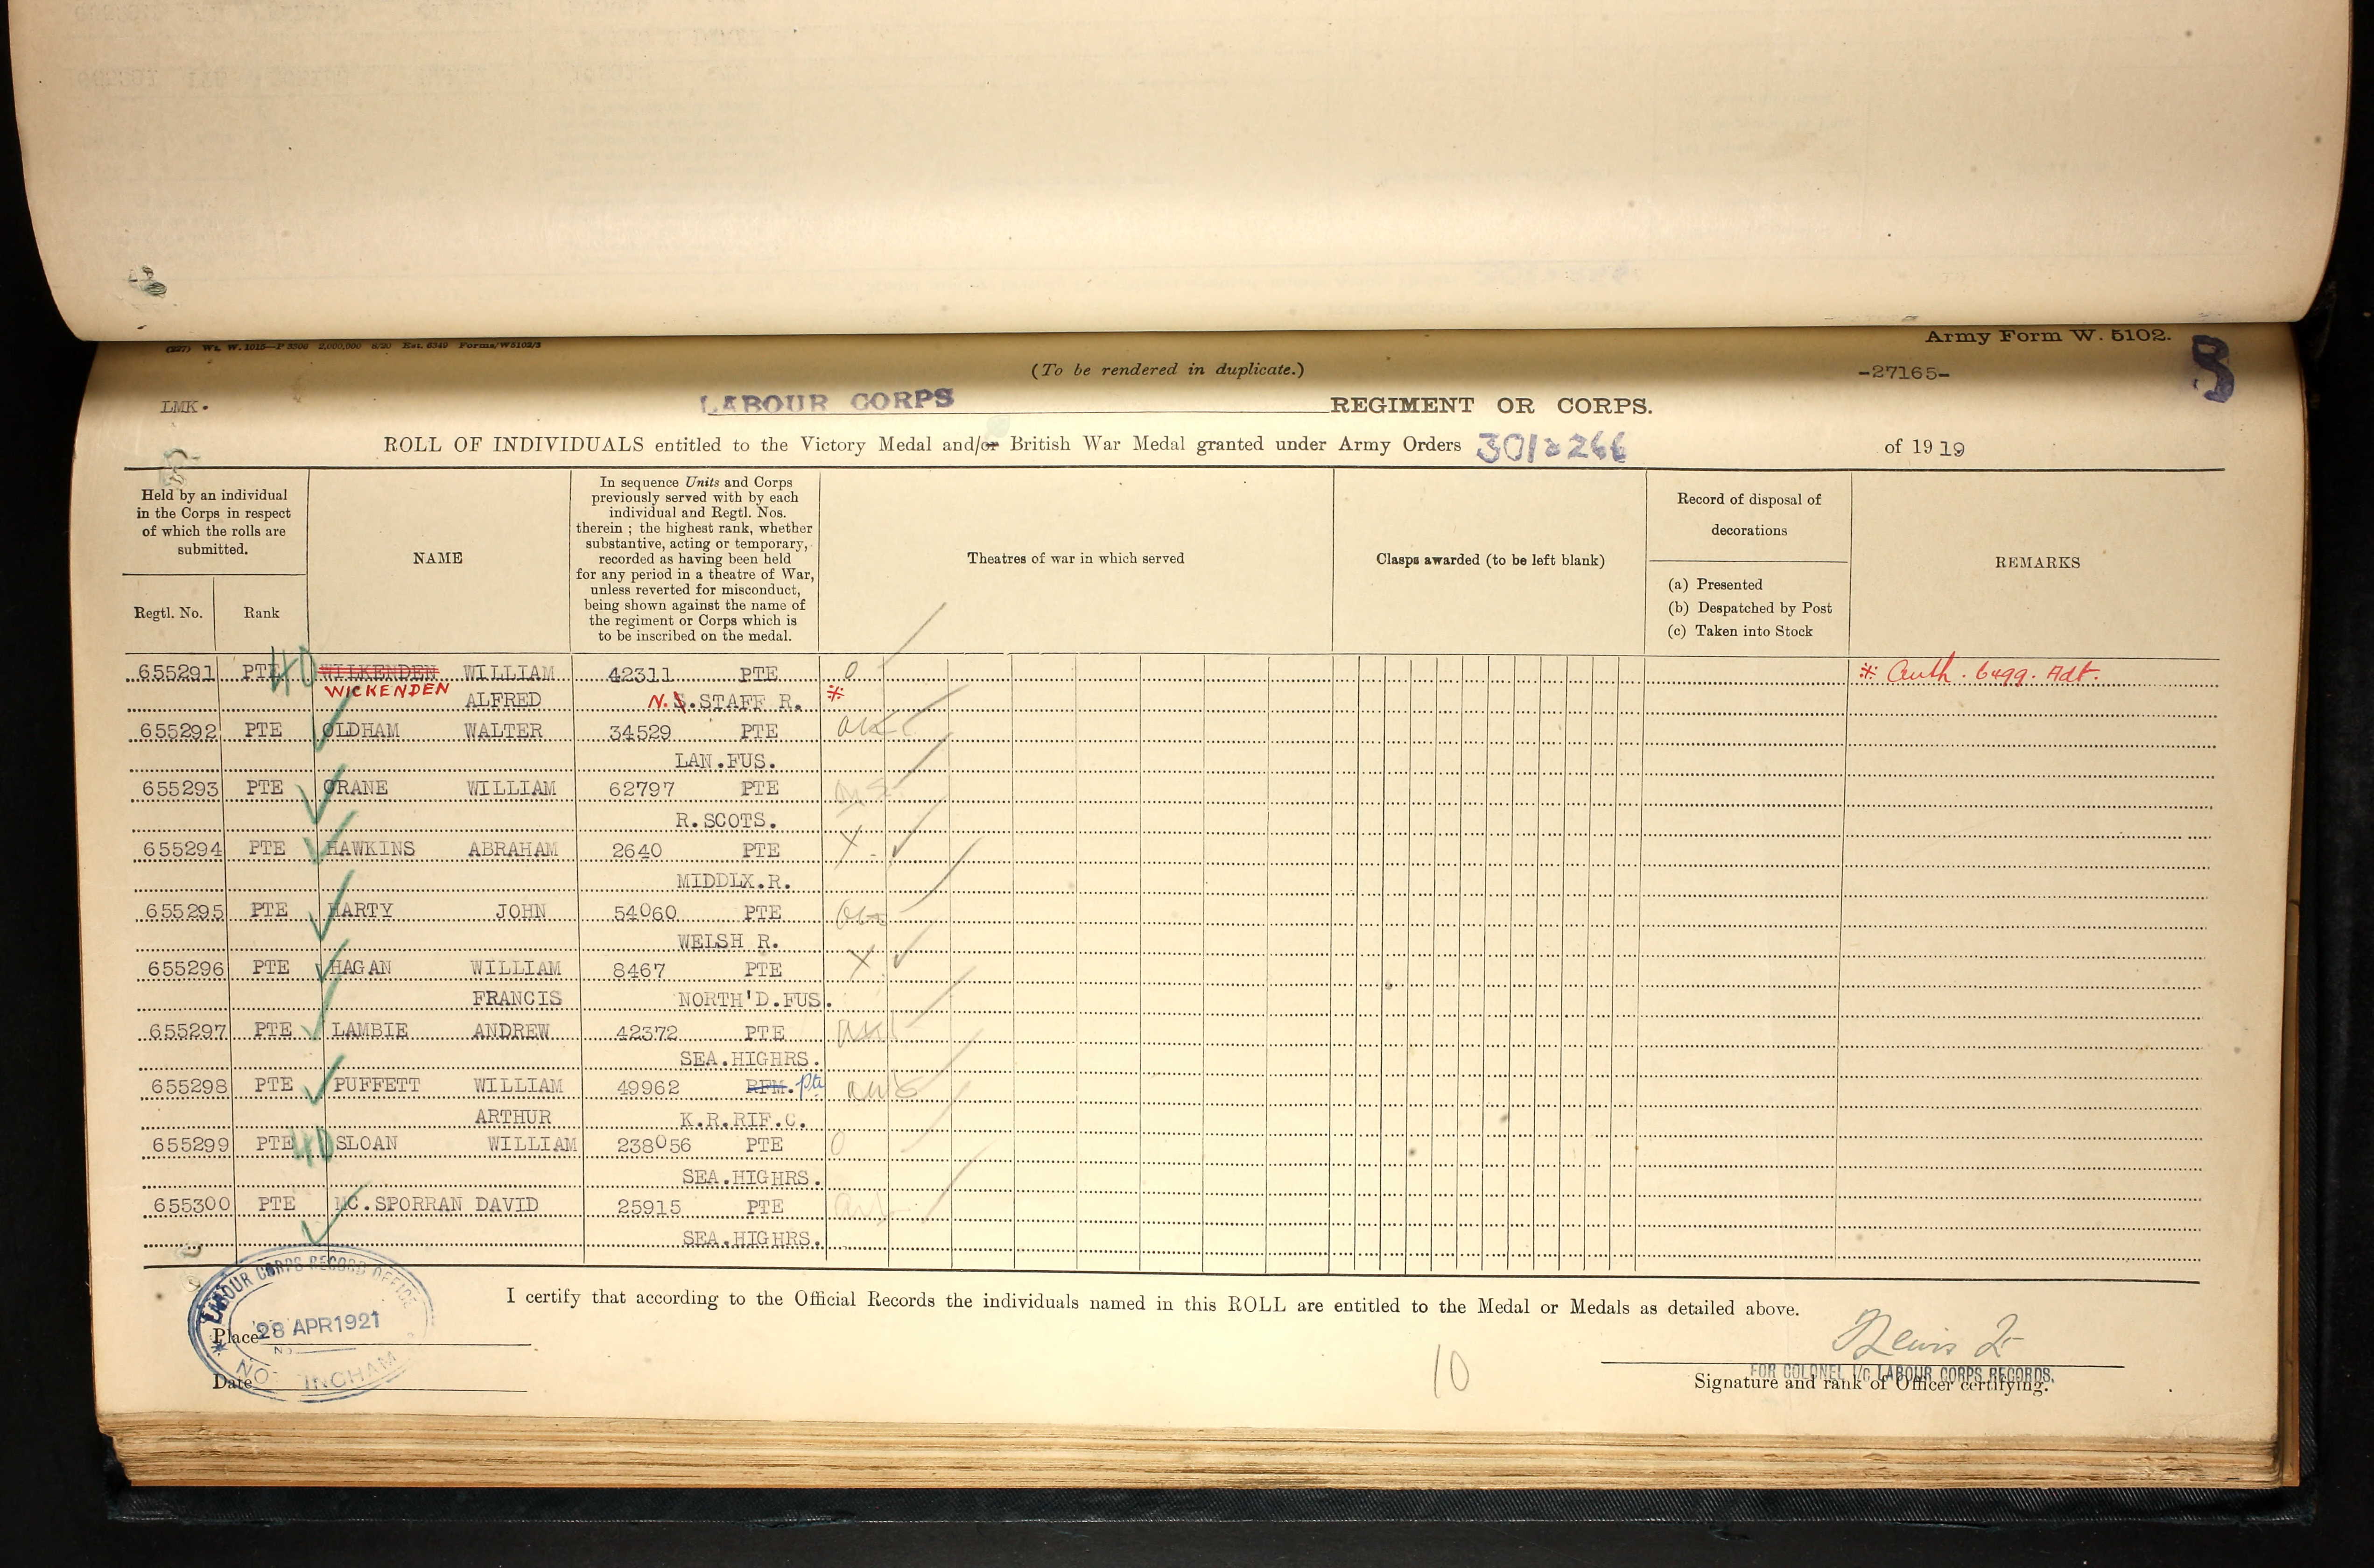 Army Form W. 5102.
(227) Wt. W. 1015—P 3308 2,000,000 8/20 Est. 6340 Forms/W5102/3
(To be rendered in duplicate.)
-27165-
LMK.
LABOUR CORPS REGIMENT OR CORPS.
ROLL OF INDIVIDUALS entitled to the Victory Medal and/or British War Medal granted under Army Orders 301 & 266 of 1919
Held by an individual in the Corps in respect of which the rolls are submitted.
Regtl. No.
Rank
NAME
In sequence Units and Corps
previously served with by each
individual and Regtl. Nos.
therein ; the highest rank, whether
substantive, acting or temporary,
recorded as having been held
for any period in a theatre of War,
unless reverted for misconduct,
being shown against the name of
the regiment or Corps which is
to be inscribed on the medal.
Theatres of war in which served
Clasps awarded (to be left blank)
Record of disposal of
decorations
(a) Presented
(b) Despatched by Post
(c) Taken into Stock
REMARKS
655291 PTE 40 WILKENDEN WILLIAM 42311 PTE O * Auth. 6499. Adt.
WICKENDEN ALFRED N.S.STAFF R. *
655292 PTE OLDHAM WALTER 34529 PTE
LAN.FUS.
655293 PTE CRANE WILLIAM 62797 PTE
R.SCOTS.
655294 PTE HAWKINS ABRAHAM 2640 PTE X
MIDDLX.R.
655295 PTE HARTY JOHN 54060 PTE
WELSH R.
655296 PTE HAGAN WILLIAM 8467 PTE X
FRANCIS NORTH'D.FUS.
655297 PTE LAMBIE ANDREW 42372 PTE
SEA.HIGHRS.
655298 PTE PUFFETT WILLIAM 49962 RFM. Pte
ARTHUR K.R.RIF.C.
655299 PTE 40 SLOAN WILLIAM 238056 PTE O
SEA.HIGHRS.
655300 PTE MC.SPORRAN DAVID 25915 PTE
SEA.HIGHRS.
I certify that according to the Official Records the individuals named in this ROLL are entitled to the Medal or Medals as detailed above.
LABOUR CORPS RECORD OFFICE
Place
28 APR 1921
NO INGHAM
Date
10
FOR COLONEL I/C LABOUR CORPS RECORDS.
Signature and rank of Officer certifying.